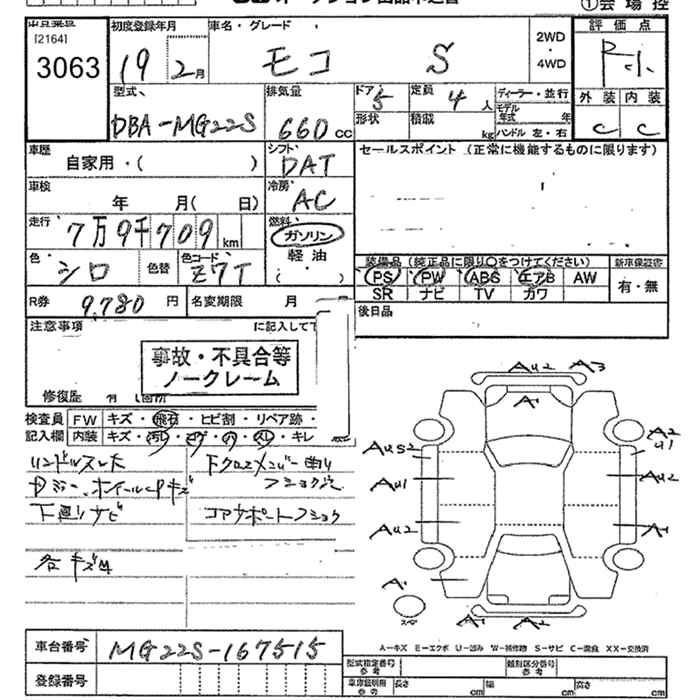 ①会場控
[2164]
3063
初度登録年月
19 2月
車名・グレード
モコ S
2WD
4WD
評価点
R小
外装 内装
C C
型式
DBA-MG22S
排気量
660 CC
ドア 5
定員 4 人
形状
積載 kg
ディーラー・並行
モデル年式 年
ハンドル 左・右
車歴
自家用・( )
シフト
DAT
セールスポイント (正常に機能するものに限ります)
車検
年 月( 日)
冷房
AC
走行
7万9千709km
燃料
ガソリン
軽油
( )
色
シロ
色替
色コード
Z7T
装備品 (純正品に限り○をつけてください)
PS PW ABS エアB AW
SR ナビ TV カワ
新車保証書
有・無
R券 9,780 円
名変期限 月
後日品
注意事項
に記入して下
事故・不具合等
ノークレーム
修復歴
検査員
記入欄
FW キズ・飛石・ヒビ割・リペア跡・
内装 キズ・汚レ・コゲ・穴・スレ・キレ
下廻りサビ
コアサポートフショク
各キズ凹
AU2 A3
A1
AUS2
AU1
AU2
A2
U1
AU2
A1
A1
スペア
A1 A2
A-キズ E-エクボ U-凹み W-補修跡 S-サビ C-腐食 XX-交換済
車台番号 MG22S-167515
登録番号
型式指定番号
参考
類別区分番号
参考
車庫証明用
参考
長さ cm
幅 cm
高さ cm